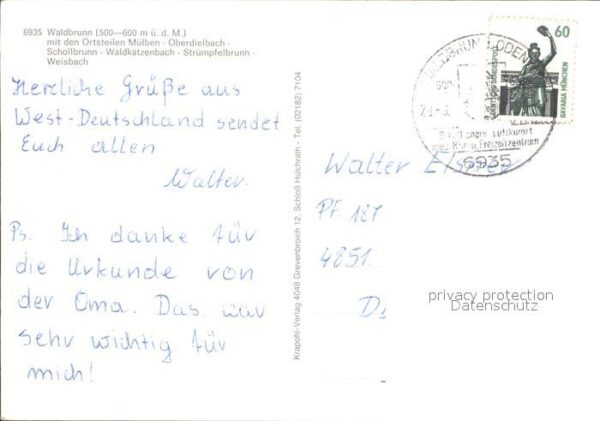 6935 Waldbrunn (500—600 m ü. d. M.)
mit den Ortsteilen Mülben - Oberdielbach -
Schollbrunn - Waldkatzenbach - Strümpfelbrunn -
Weisbach
Herzliche Grüße aus
West-Deutschland sendet
Euch allen
Walter.
Ps. Ich danke für
die Urkunde von
der Oma. Das war
sehr wichtig für
mich!
Krapohl-Verlag 4048 Grevenbroich 12, Schloß Hulchrath - Tel. (02182) 7104
60
DEUTSCHE BUNDESPOST
BAVARIA MÜNCHEN
Luftkurort
u. Freizeitzentrum
6935
Walter
PF. 187
4851
D
privacy protection
Datenschutz